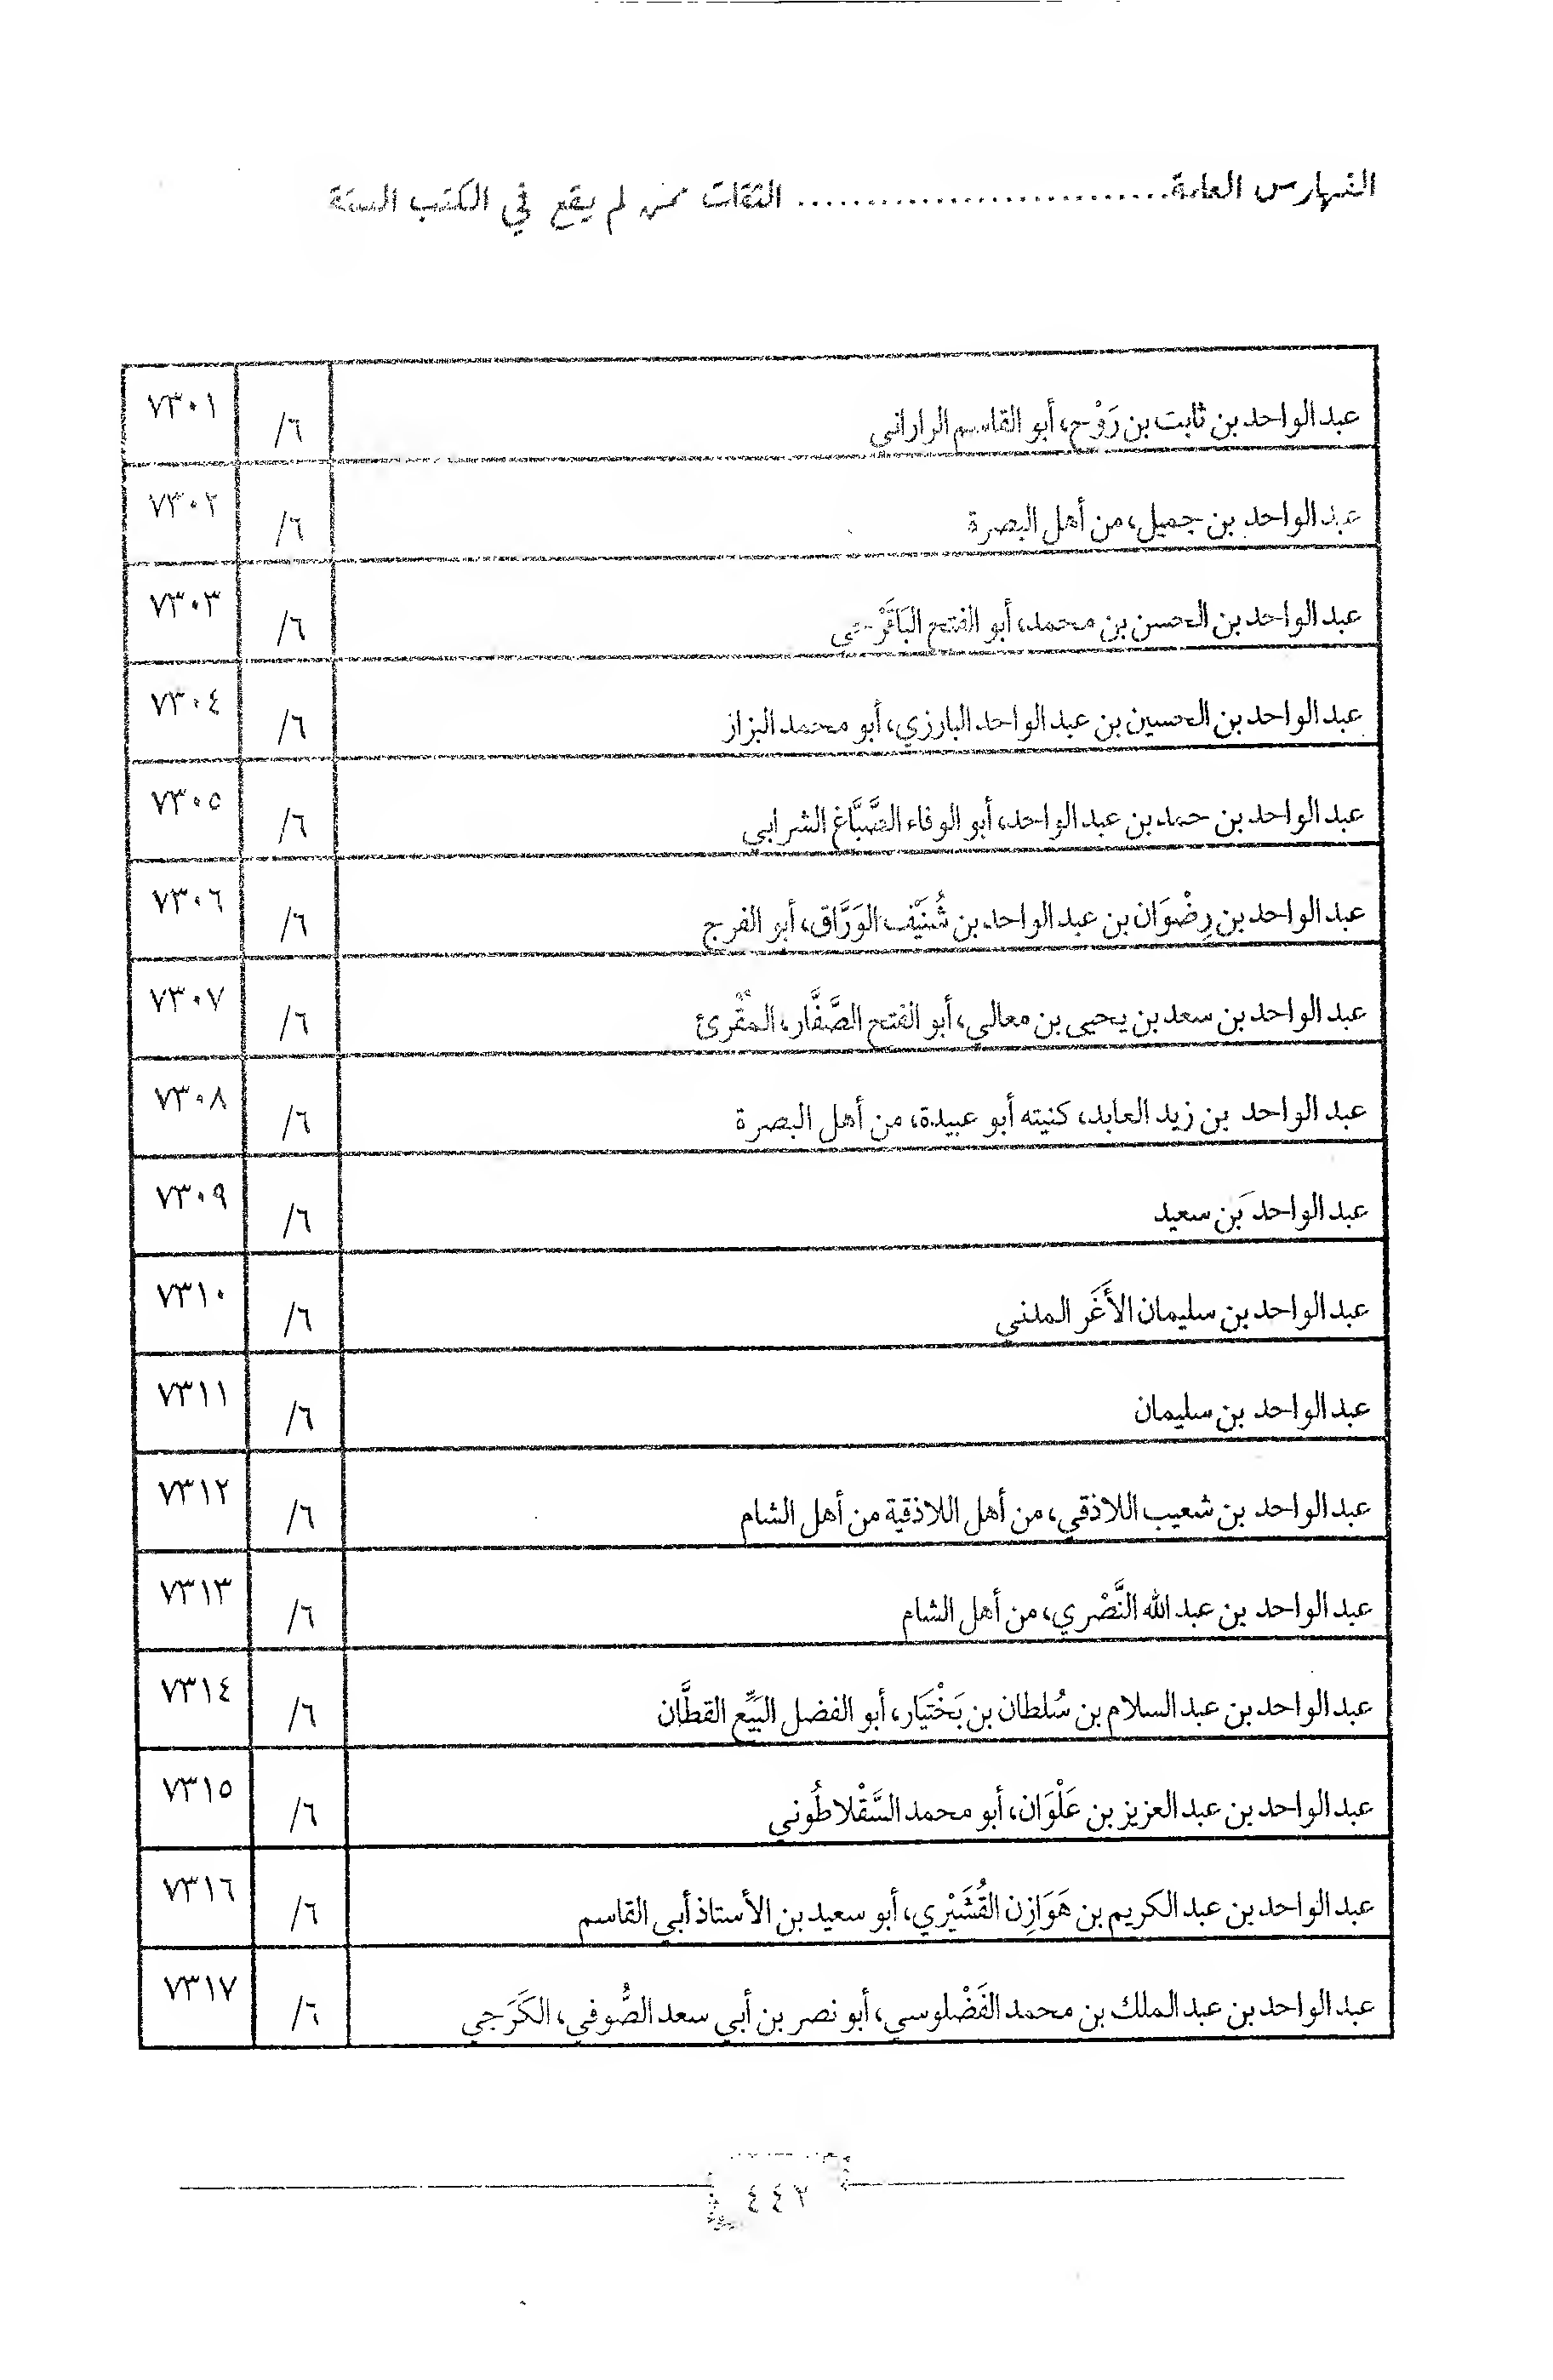 الفهارس العامة ........................... الثقات ممن لم يقع في الكتب الستة
عبد الواحد بن ثابت بن رَوْح، أبو القاسم الراراني ٦/ ٧٣٠١
عبد الواحد بن جميل، من أهل البصرة ٦/ ٧٣٠٢
عبد الواحد بن الحسن بن محمد، أبو الفتح البَاقَرْحي ٦/ ٧٣٠٣
عبد الواحد بن الحسين بن عبد الواحد البارزي، أبو محمد البزاز ٦/ ٧٣٠٤
عبد الواحد بن حمد بن عبد الواحد، أبو الوفاء الصَّبَّاغ الشرابي ٦/ ٧٣٠٥
عبد الواحد بن رِضْوَان بن عبد الواحد بن شُنَيْف الوَرَّاق، أبو الفرج ٦/ ٧٣٠٦
عبد الواحد بن سعد بن يحيى بن معالي، أبو الفتح الصَّفَّار، المُقْرئ ٦/ ٧٣٠٧
عبد الواحد بن زيد العابد، كنيته أبو عبيدة، من أهل البصرة ٦/ ٧٣٠٨
عبد الواحد بن سعيد ٦/ ٧٣٠٩
عبد الواحد بن سليمان الأَغَر المدني ٦/ ٧٣١٠
عبد الواحد بن سليمان ٦/ ٧٣١١
عبد الواحد بن شعيب اللاذقي، من أهل اللاذقية من أهل الشام ٦/ ٧٣١٢
عبد الواحد بن عبد الله النَّصْري، من أهل الشام ٦/ ٧٣١٣
عبد الواحد بن عبد السلام بن سُلطان بن بَخْتيَار، أبو الفضل البَيِّع القطَّان ٦/ ٧٣١٤
عبد الواحد بن عبد العزيز بن عَلْوَان، أبو محمد السَّقْلاطُوني ٦/ ٧٣١٥
عبد الواحد بن عبد الكريم بن هَوَازِن القُشَيْري، أبو سعيد بن الأستاذ أبي القاسم ٦/ ٧٣١٦
عبد الواحد بن عبد الملك بن محمد الفَضْلوسي، أبو نصر بن أبي سعد الصُّوفي، الكَرَجي ٦/ ٧٣١٧
٤٤٢